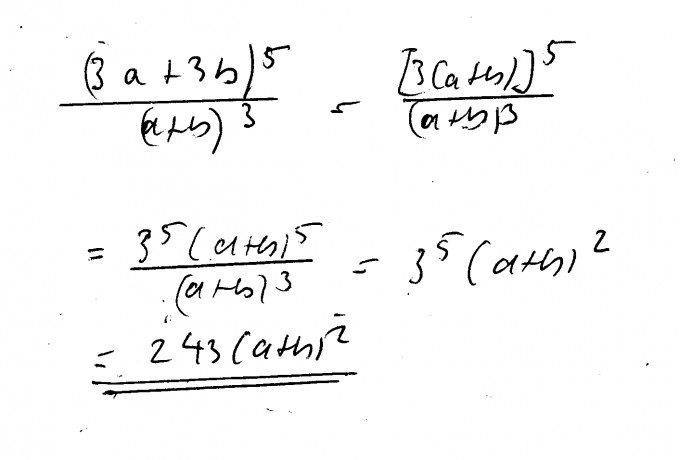 (3a+3b)^5 / (a+b)^3 = [3(a+b)]^5 / (a+b)^3
= 3^5(a+b)^5 / (a+b)^3 = 3^5(a+b)^2
= 243(a+b)^2